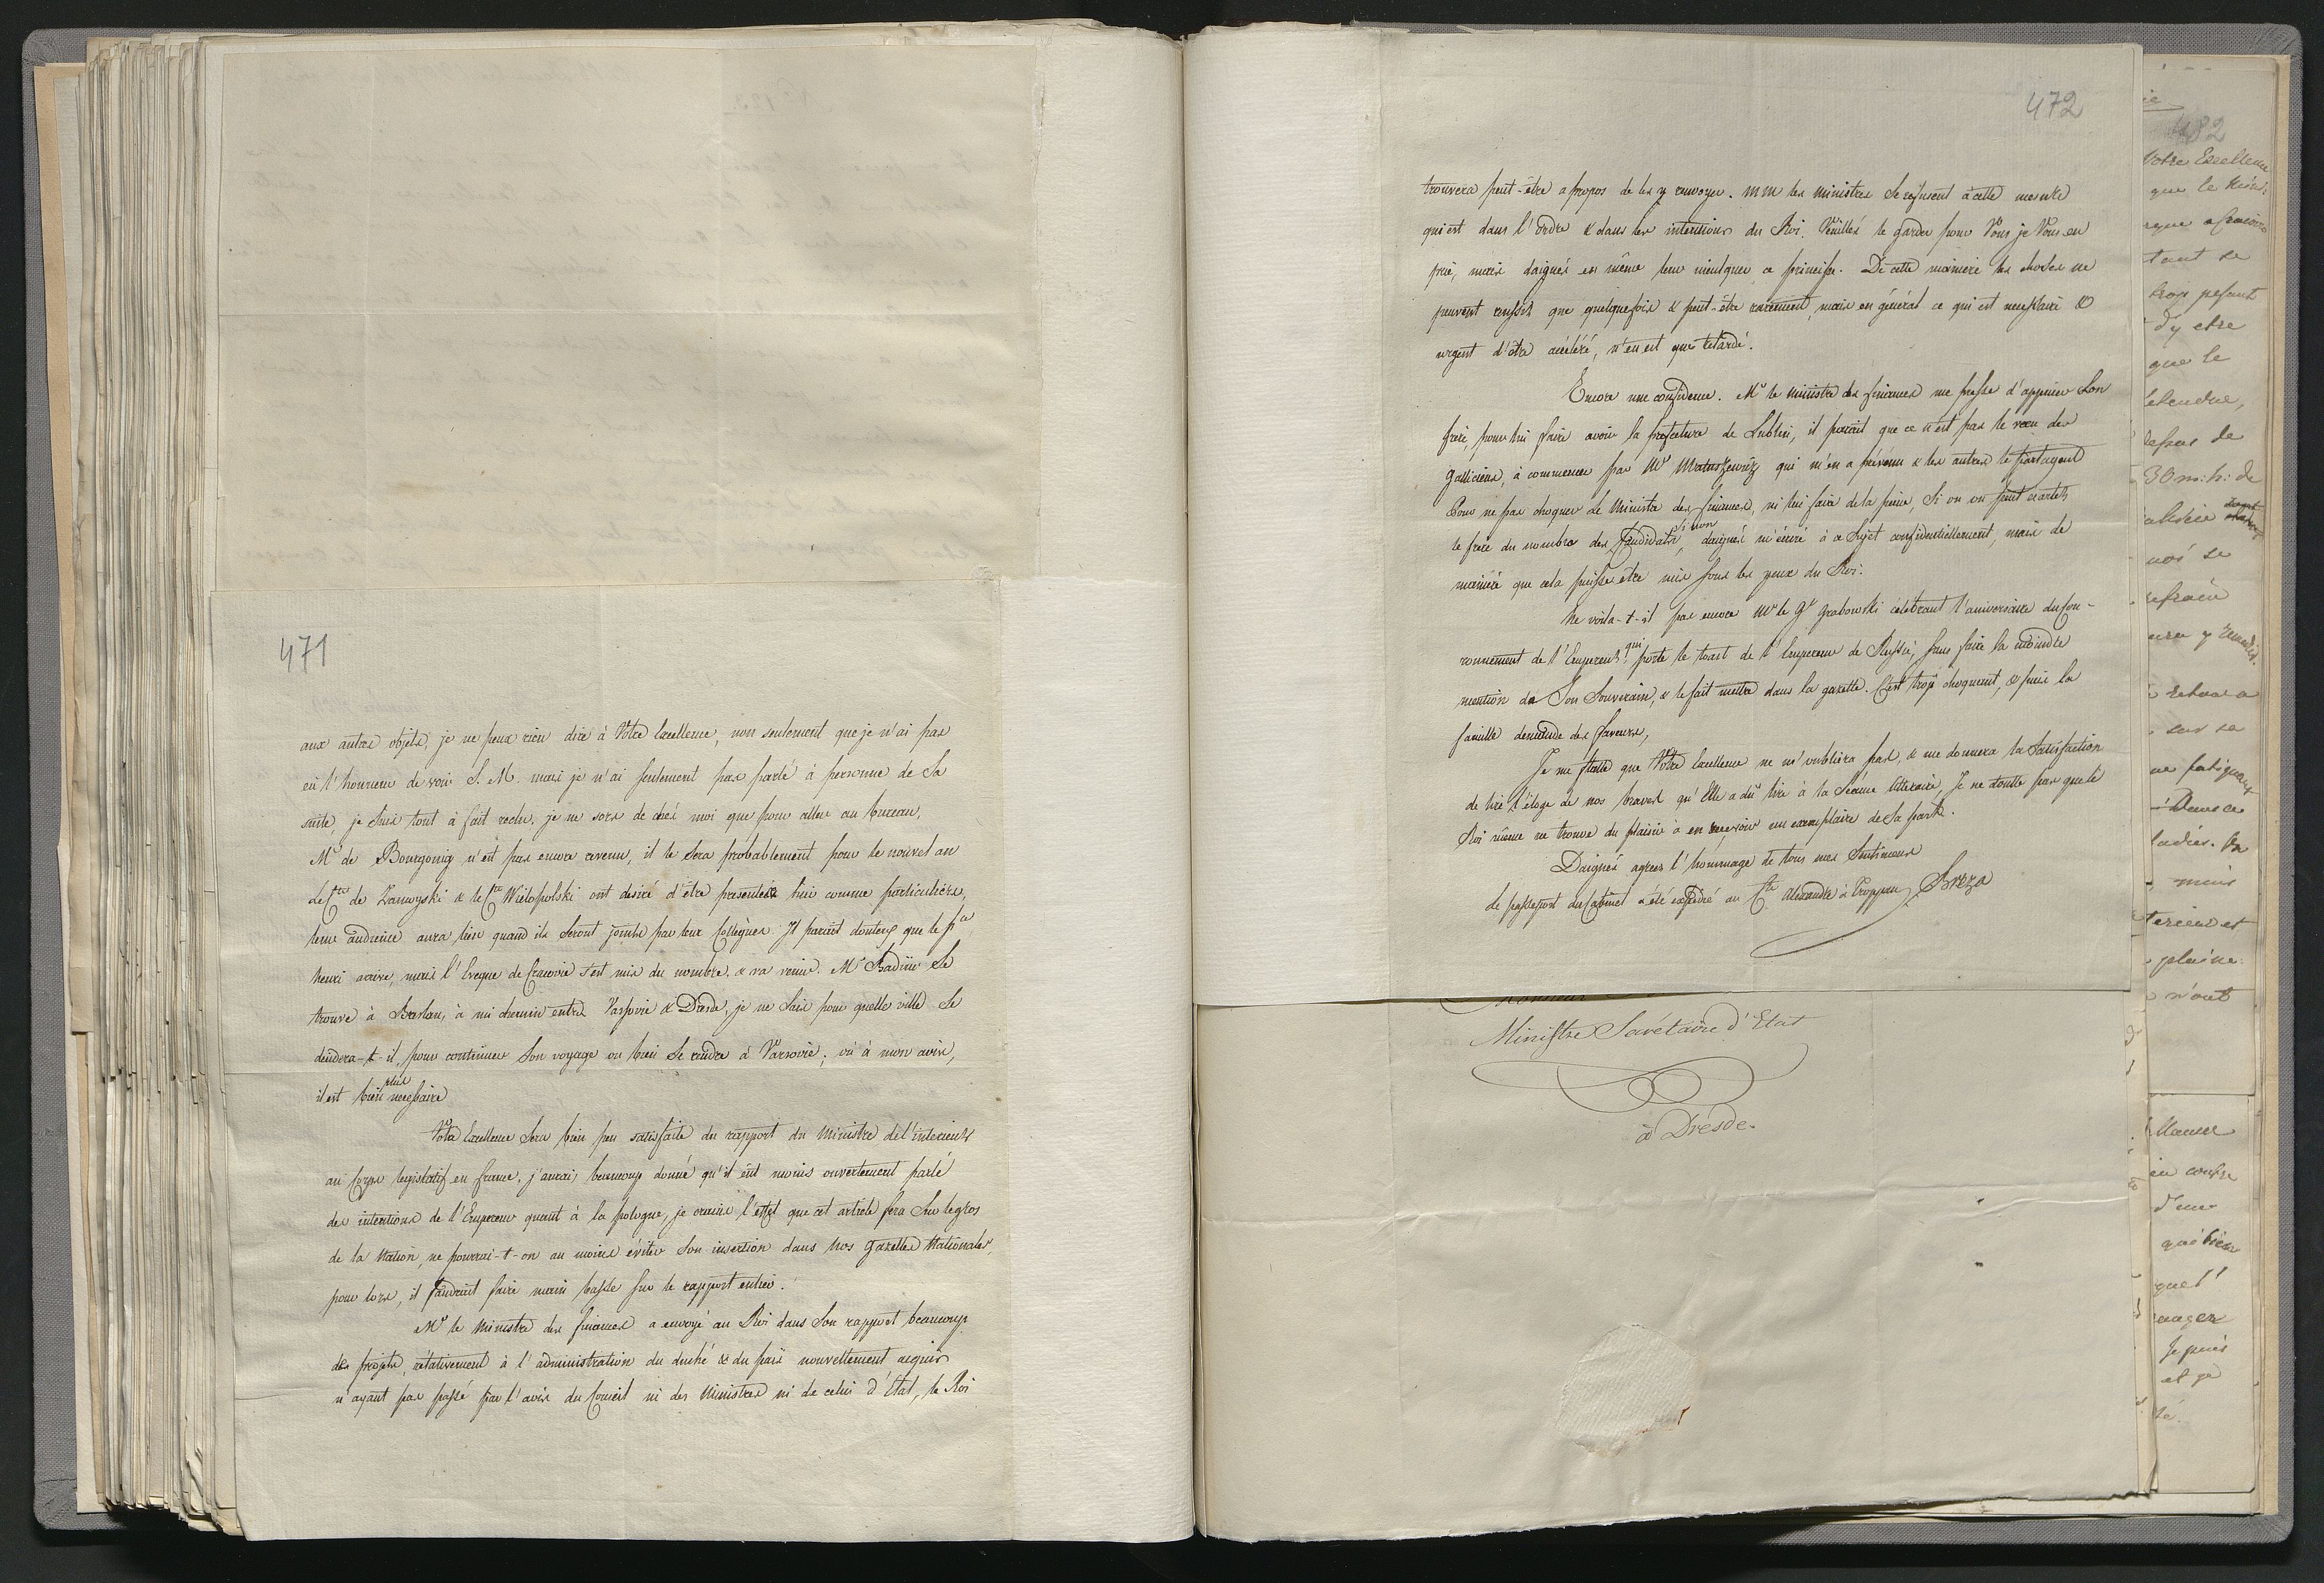 471
aux autres objets, je ne peux rien dire à Votre Excellence, non seulement que je n'ai pas
eû l'honneur de voir S. M. mais je n'ai seulement pas parlé à personne de Sa
suite, je suis tout à fait reclu, je ne sors de chés moi que pour aller au bureau.
Mr de Bourgoing n'est pas encore revenu, il le sera probablement pour le nouvel an
Le Cte de Zamoyski & le Cte Wielopolski ont desiré d'être presentés hier comme particuliers,
leur audience aura lieu quand ils seront joints par leur Collègues. Il parait douteux que le pce
henri arrive, mais l'Eveque de Cracovie s'est mis du nombre, & va venir. Mr Badeni se
trouve à Breslau, à mi chemin entre Varsovie & Dresde, je ne sais pour quelle ville se
decidera-t-il, pour continuer son voyage ou bien se rendre à Varsovie, où à mon avis,
il est bien plus necessaire
Votre Excellence sera bien peu satisfaite du rapport du Ministre de l'interieur
au Corps legislatif en france, j'aurai beaucoup donné qu'il eût moins ouvertement parlé
des intentions de l'Empereur quant à la pologne, je crains l'effet que cet article fera sur le gros
de la Nation, ne pourrai-t-on au moins éviter son insertion dans nos Gazettes Nationales,
pour lors, il faudrait faire main basse sur le rapport entier.
Mr le Ministre des finances a envoyé au Roi dans son rapport beaucoup
des projets, rélativement à l'administration du duché & du païs nouvellement aequis
n'ayant pas passé par l'avis du Conseil ni des Ministres ni de celui d'Etat, le Roi
472
trouvera peut-être apropos de les y renvoyer. MM les Ministres se refusent à cette mesure
qui est dans l'ordre & dans les intentions du Roi. Veuillés le garder pour Vous je Vous en
prie, mais daignés en même tems inculquer ce principe. De cette manière les choses ne
peuvent reussir que quelquefois & peut-être rarement, mais en général ce qui est necessaire &
urgent d'être accéléré, n'en est que retardé.
Encore une confidence. Mr le Ministre des finances me presse d'appuier son
frere, pour lui faire avoir la prefecture de Lublin, il parait que ce n'est pas le voeu des
Galliciens, à commencer par Mr Matuszewicz qui m'en a prévenu & les autres le partagent
Pour ne pas choquer Le Ministre des finances, ni lui faire de la peine, Si on on peut écarter
le frere du nombre des Candidats, si non daignés m'écrire à ce sujet confidentiellement, mais de
manière que cela puisse être mis sous les yeux du Roi.
Ne voila-t-il pas encore Mr le Gl Grabowski célébrant l'aniversaire du Cou-
ronnement de l'Empereur, qui porte le toast de l'Empereur de Russie, sans faire la moindre
mention de Son Souverain, & le fait mettre dans la gazette. C'est trop choquant, & puis la
famille demande des faveurs,
Je me flatte que Votre Excellence ne m'oubliera pas, & me donnera la satisfaction
de lire l'éloge de nos braves qu'Elle a dû lire à la Séance litteraire, Je ne doute pas que le
Roi même ne trouve du plaisir à en recevoir un exemplaire de Sa part.
Daignés agreer l'hommage de tous mes Sentimens
Breza
Le passeport du Cabinet a été expedié au Cte Alexandre à Troppau
Ministre Secrétaire d'Etat
à Dresde.
482
Votre Excellence
que le
tant se
trop pesant
d'y etre
que le
30 m: